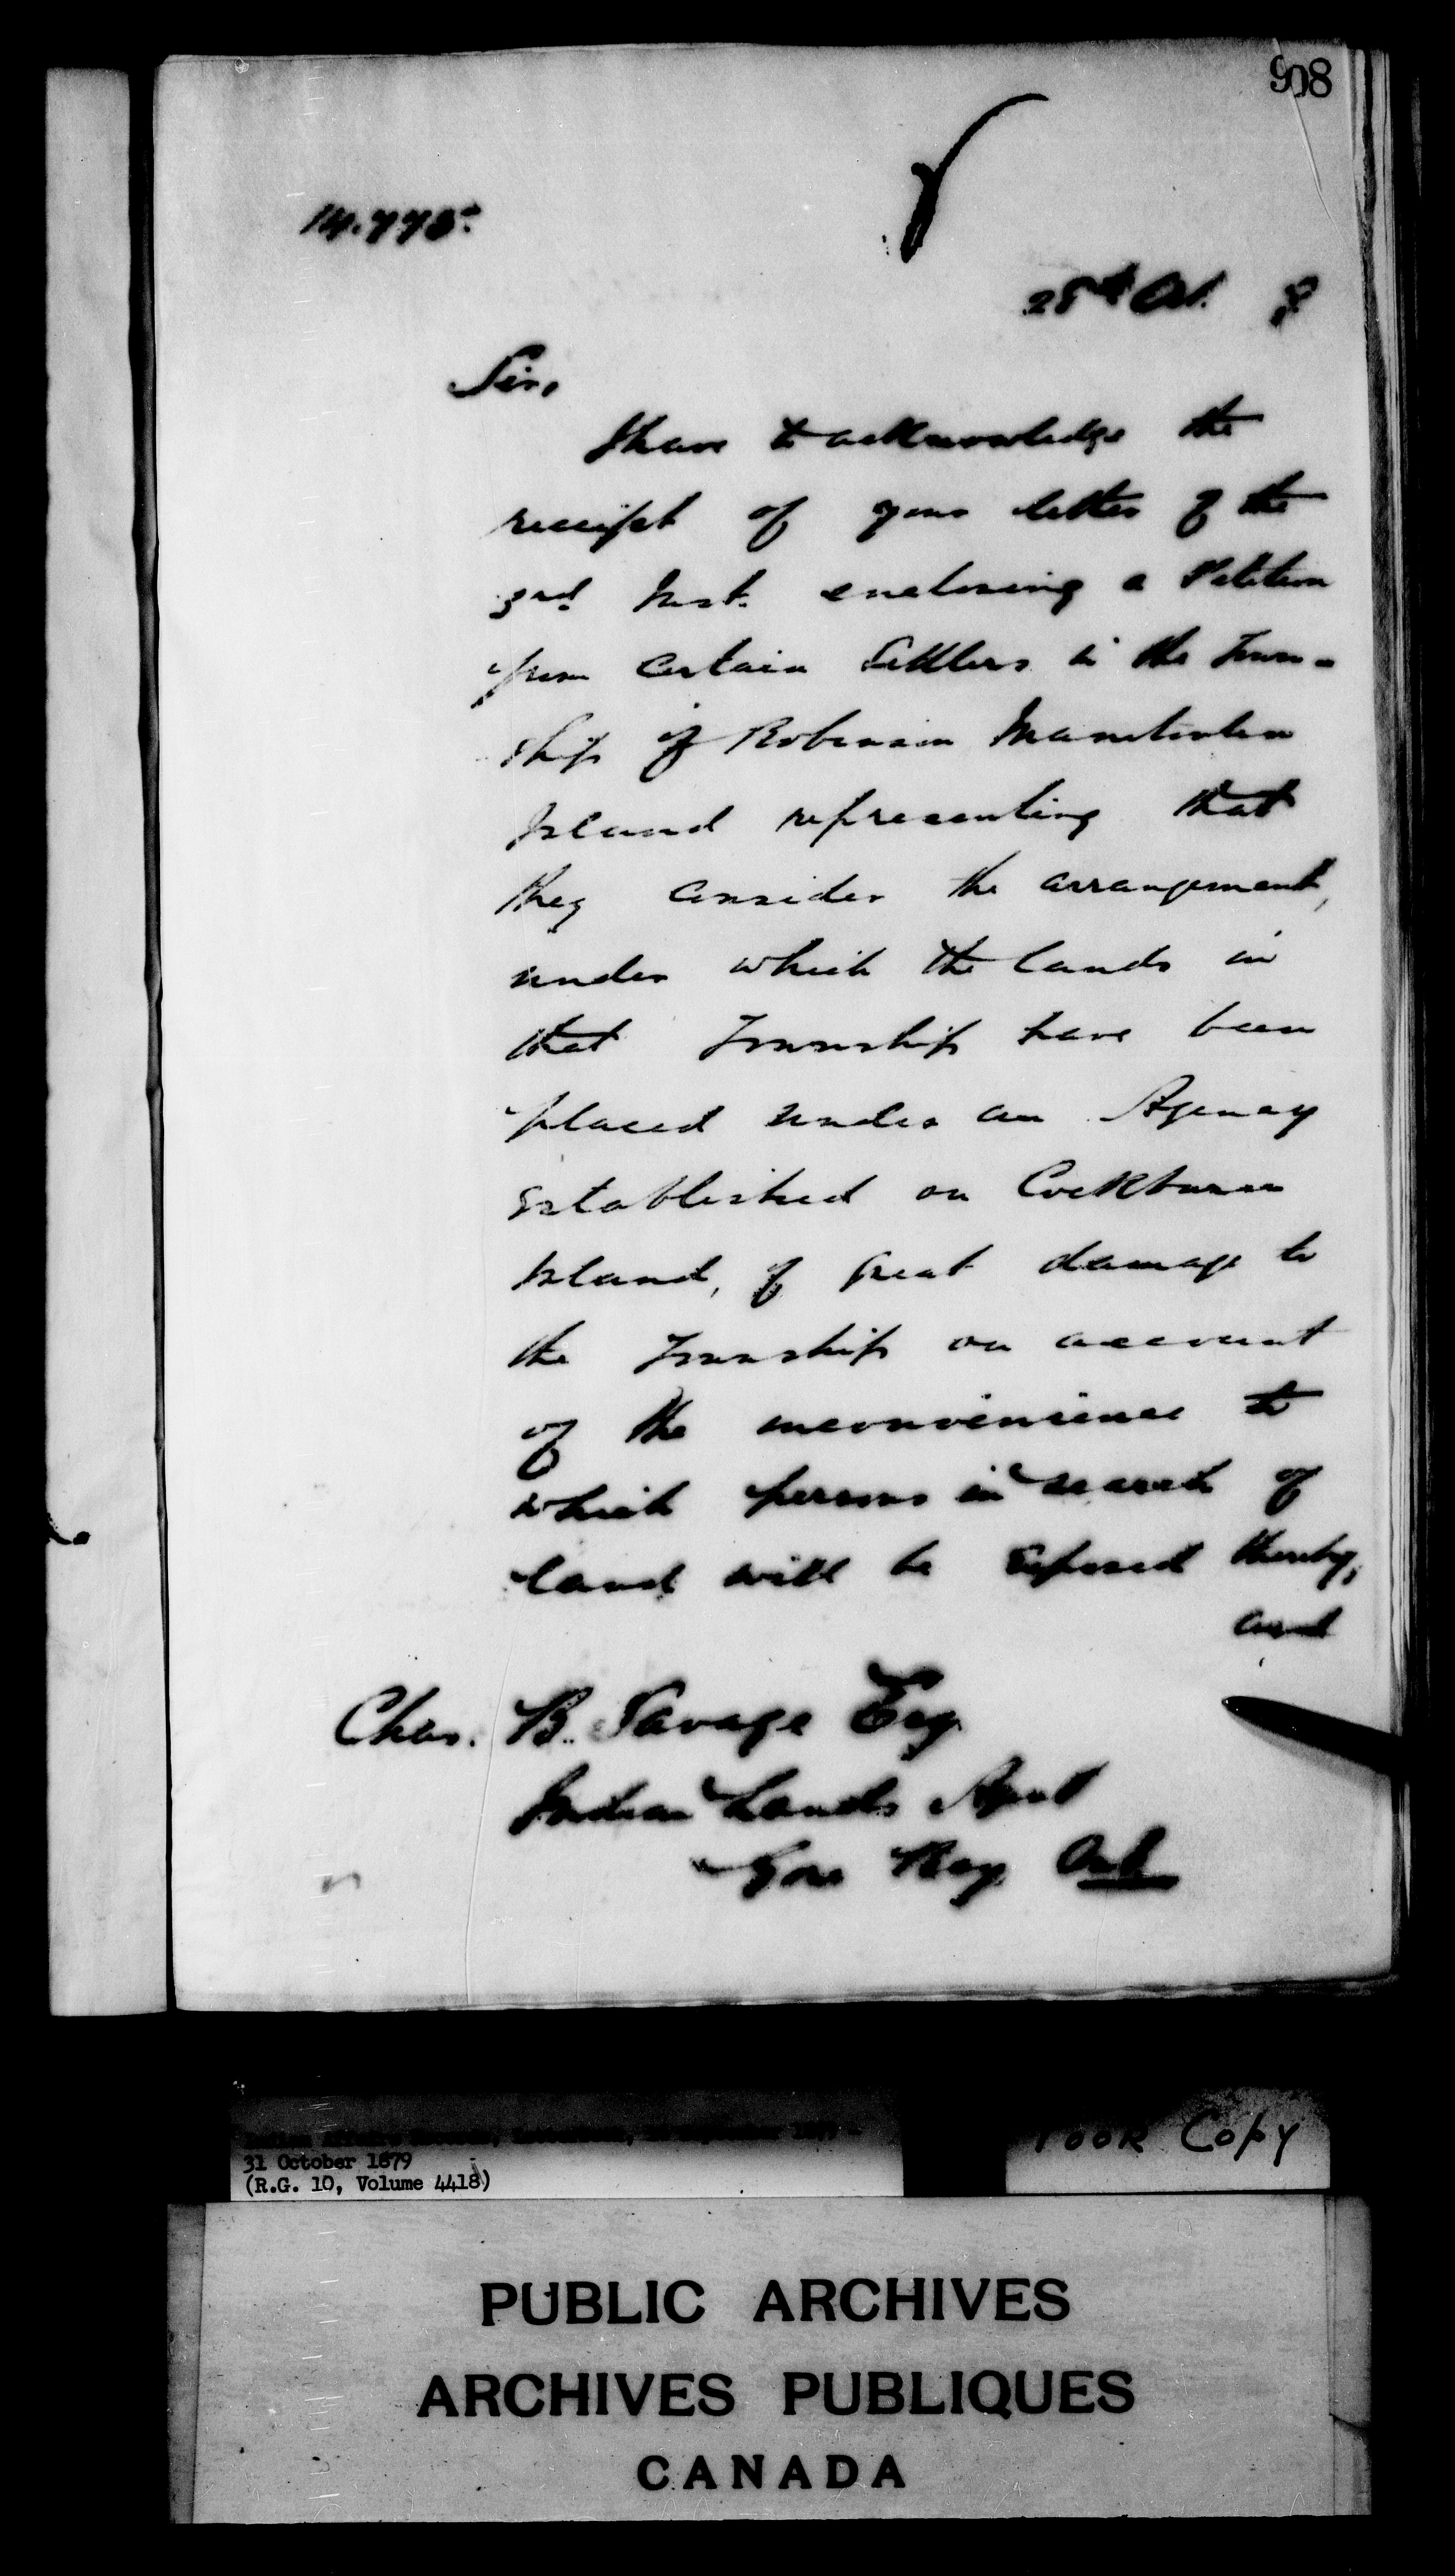 908
14.775
28th Oct. 9
Sir,
I have to acknowledge the
receipt of your letter of the
3rd Inst. enclosing a Petition
from certain Settlers in the Town-
ship of Robinson Manitoulin
Island representing that
they consider the arrangement,
under which the lands in
that Township have been
placed under an Agency
established on Cockburn
Island, of great damage to
the Township on account
of the inconvenience to
which persons in search of
land will be exposed thereby,
and
Chas. B. Savage Esq
Indian Lands Agent
Gore Bay Ont
31 October 1879
(R.G. 10, Volume 4418)
Poor Copy
PUBLIC ARCHIVES
ARCHIVES PUBLIQUES
CANADA